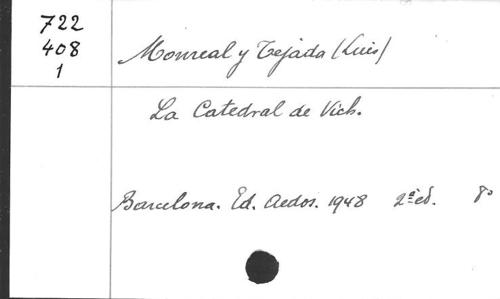 722
408
1
Monreal y Tejada (Luis)
La Catedral de Vich.
Barcelona. Ed. Aedos. 1948 2ª ed. 8º